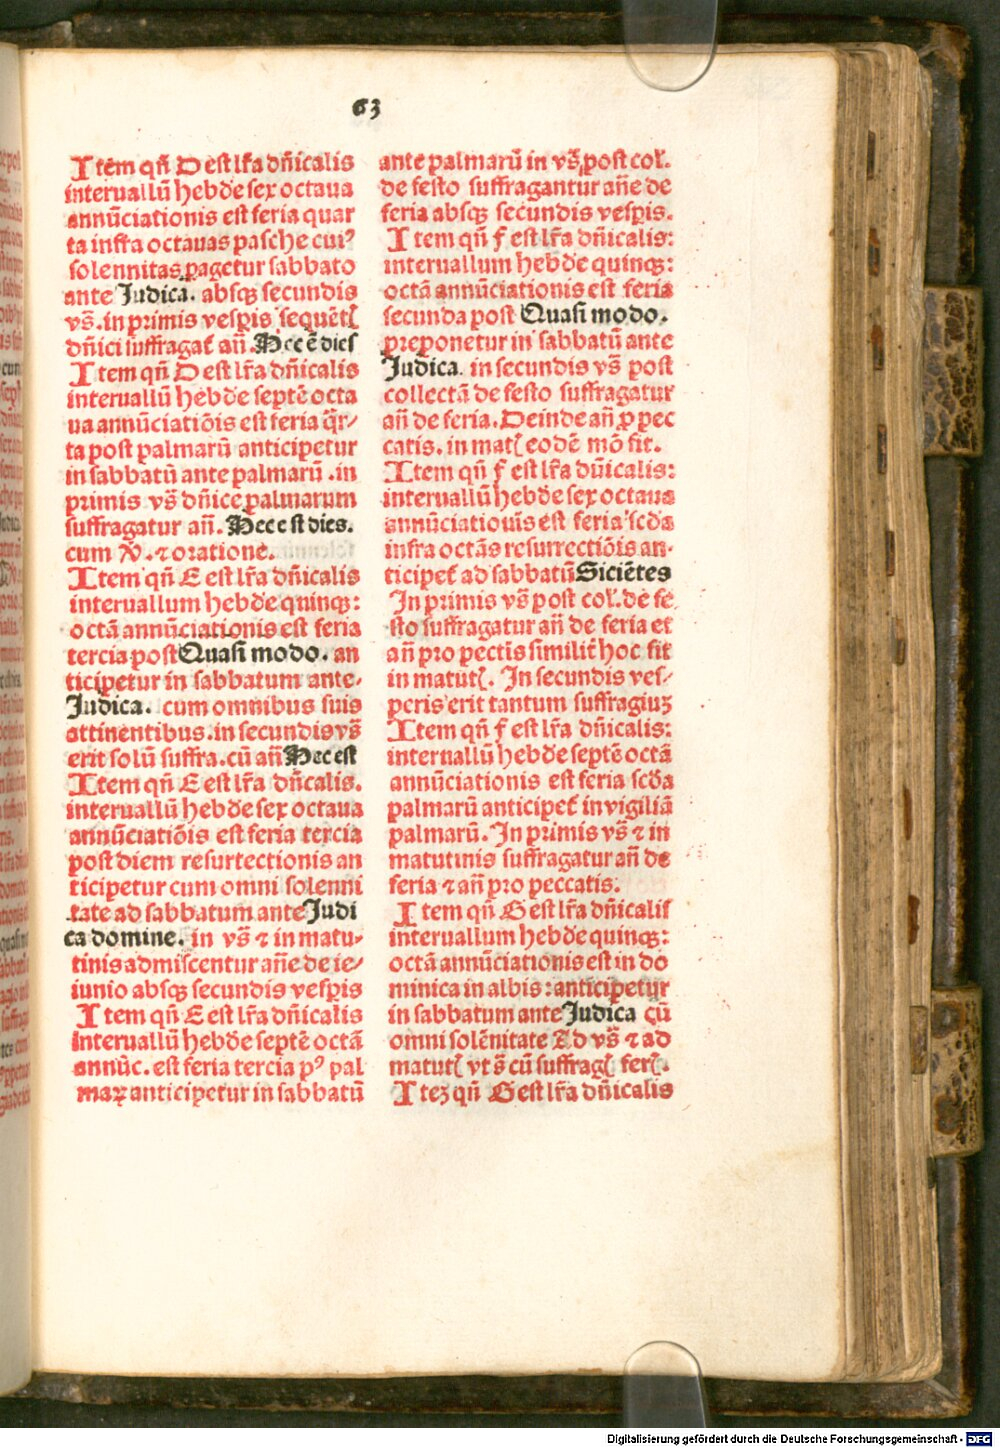 63
Item qñ D est lr̃a dñicalis
interuallũ hebde sex octaua
annũciationis est feria quar
ta infra octauas pasche cuiꝰ
solennitas pagetur sabbato
ante Judica. absqꝫ secundis
vs̃. in primis vespis sequẽtꝭ
dñici suffragat̃ añ. Hec ẽ dies
Item qñ D est lr̃a dñicalis
interuallũ hebde septẽ octa
ua annũciatiõis est feria q̃r⸗
ta post palmarũ anticipetur
in sabbatũ ante palmarũ .in
primis vs̃ dñice palmarum
suffragatur añ. Hec est dies.
cum ℣. ⁊ oratione.
Item qñ E est lr̃a dñicalis
interuallum hebde quinqꝫ:
octã annũciationis est feria
tercia post Quasi modo. an
ticipetur in sabbatum ante⸗
Judica. cum omnibus suis
attinentibus. in secundis vs̃
erit solũ suffra. cũ añ Hec est
Item qñ E est lr̃a dñcalis.
interuallũ hebde sex octaua
annũciatiõis est feria tercia
post diem resurtectionis an
ticipetur cum omni solenni
tate ad sabbatum ante Judi
ca domine. in vs̃ ⁊ in matu⸗
tinis admiscentur añe de ie⸗
iunio absqꝫ secundis vespis
Item qñ E est lr̃a dñicalis
interuallũ hebde septẽ octã
annũc. est feria tercia pꝰ pal
maꝝ anticipetur in sabbatũ
ante palmarũ in vs̃, post col̃.
de festo suffragantur añe de
feria absqꝫ secundis vespis.
Item qñ f est lr̃a dñicalis:
interuallum hebde quinqꝫ:
octã annũciationis est feria
secunda post Quasi modo.
preponetur in sabbatũ ante
Judica. in secundis vs̃ post
collectã de festo suffragatur
añ de feria. Deinde añ ꝓ pec
catis. in matꝭ eodẽ mõ fit.
Item qñ f est lr̃a dñicalis:
interuallũ hebde sex octaua
annũciatiouis est feria scda
infra octãs resurrectiõis an⸗
ticipet̃ ad sabbatũ Siciẽtes
In primis vs̃ post col̃. de fe
sto suffragatur añ de feria et
añ pro pectis similit̃ hoc fit
in matutꝭ. In secundis ves⸗
peris erit tantum suffragiuꝫ
Item qñ f est lr̃a dñicalis:
interuallũ hebde septẽ octã
annũciationis est feria scda
palmarũ anticipet̃ in vigiliã
palmarũ. In primis vs̃ ⁊ in
matutinis suffragatur añ de
feria ⁊ añ pro peccatis.
Item qñ G est lr̃a dñicalis
interuallum hebde quinqꝫ:
octã annũciationis est in do
minica in albis: anticipetur
in sabbatum ante Judica cũ
omni solẽnitate ⁊ ad vs̃ ⁊ ad
matutꝭ vt s̃ cũ suffragꝭ ferꝭ.
Iteꝫ qñ G est lr̃a dñicalis
Digitalisierung gefördert durch die Deutsche Forschungsgemeinschaft - DFG